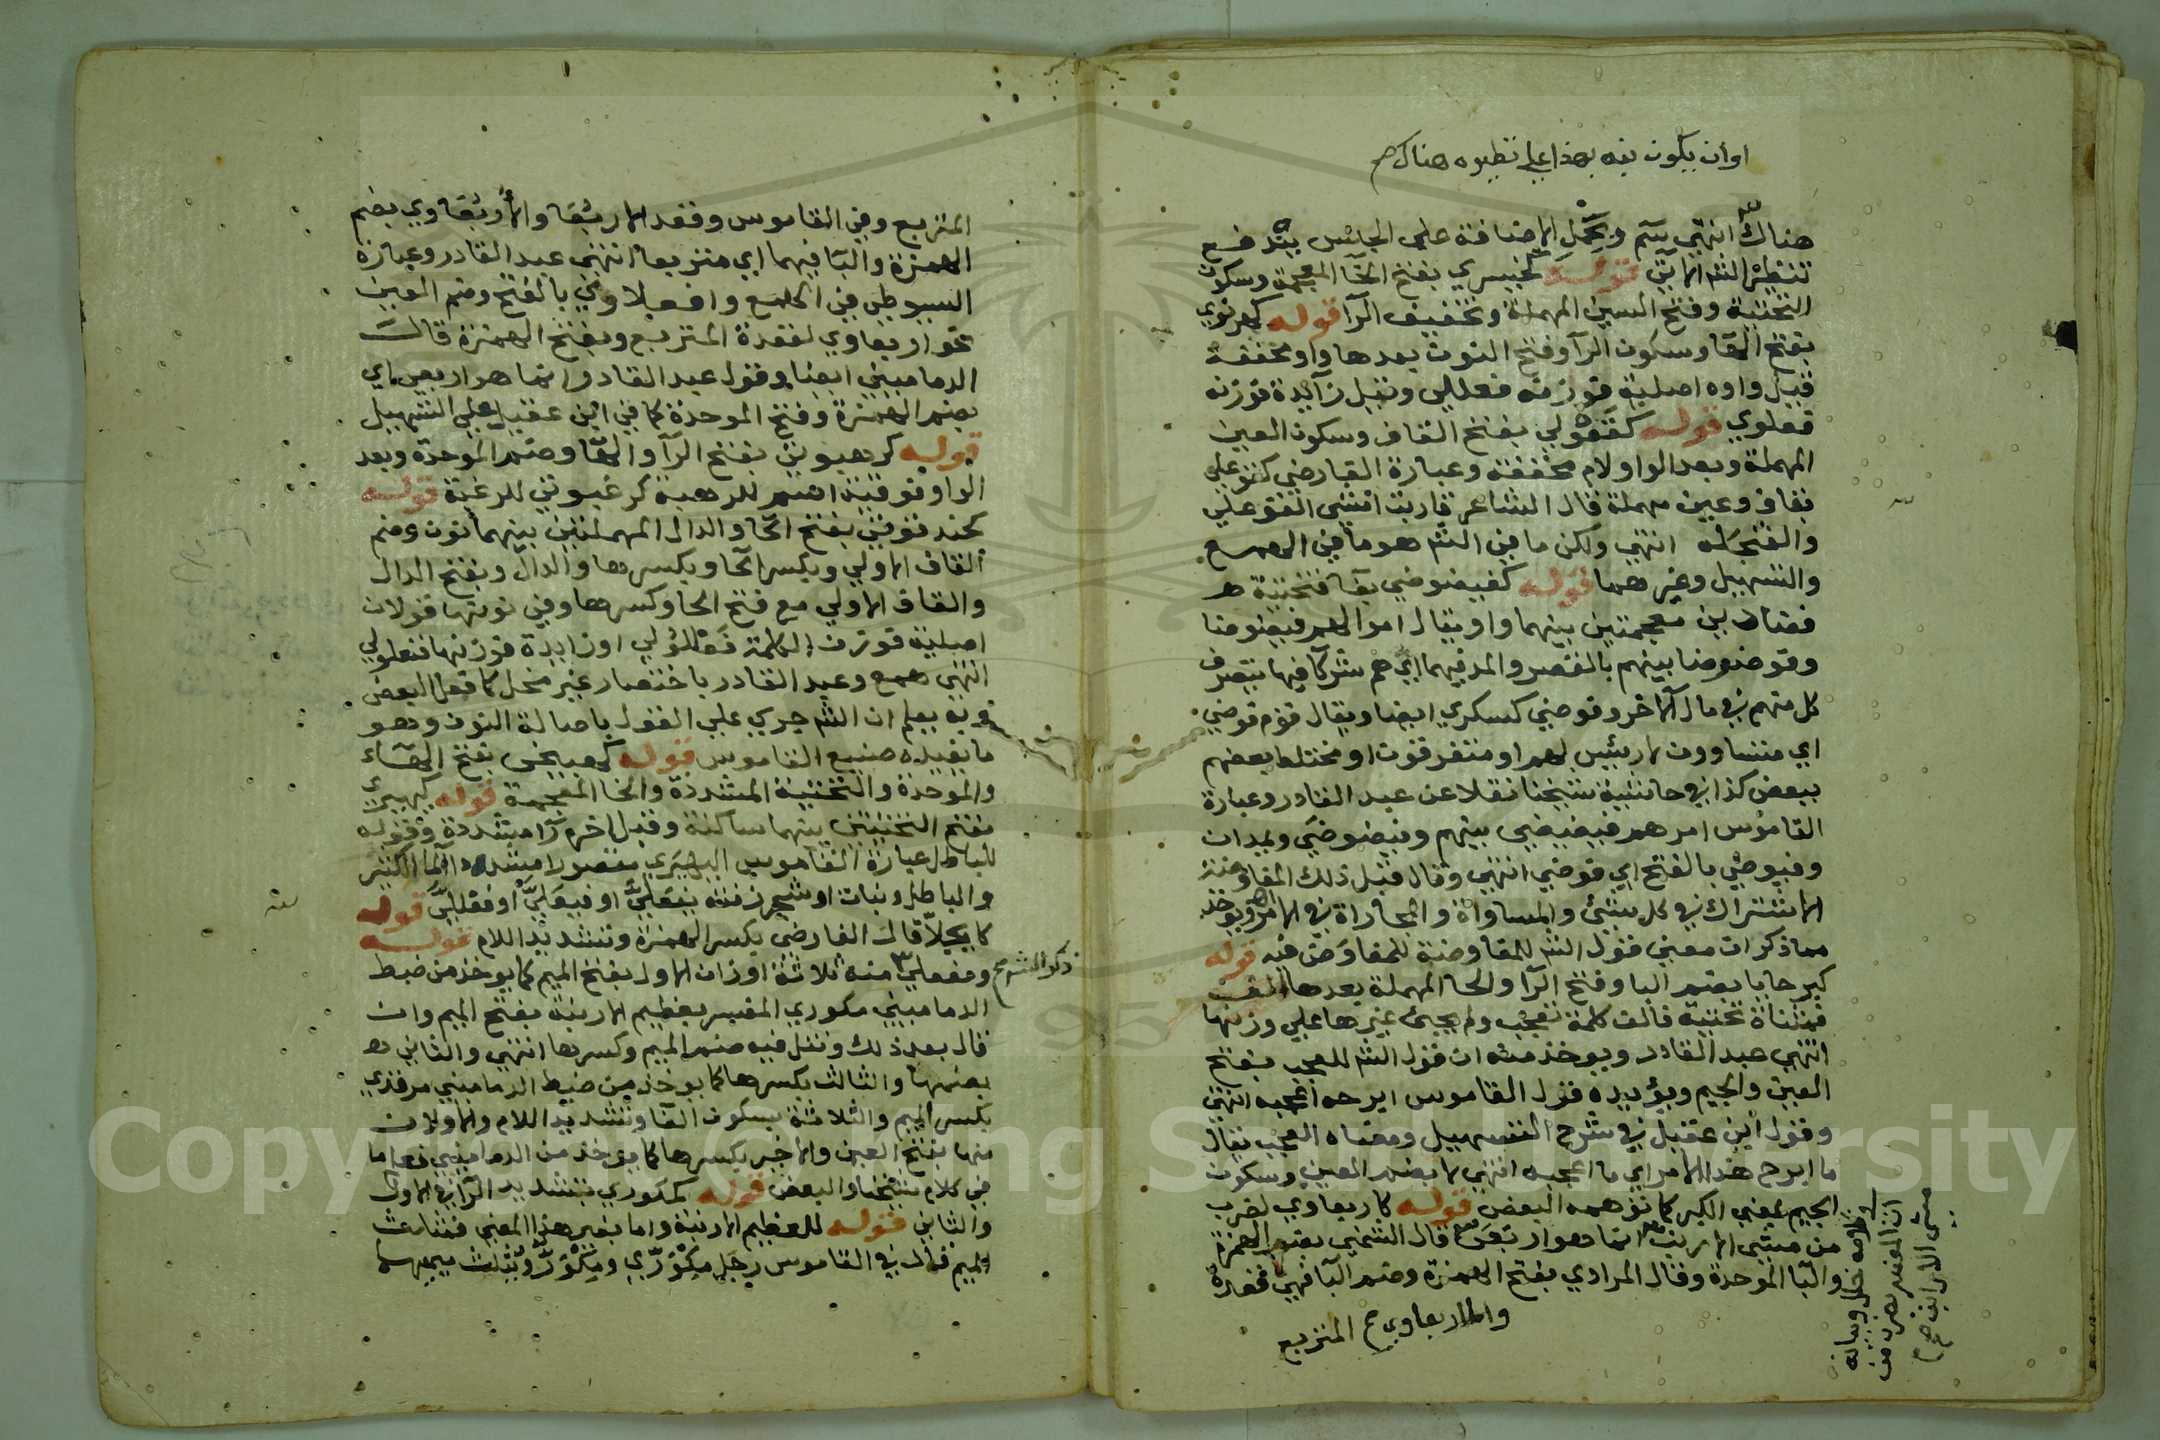 او ان يكون نبه بهذا علي نظيره هناك صح
هناك انتهي سم وبحمل الاضافة علي الجنس يندفع
تنظير الشم الاتي قوله كخيسري بفتح الخا المعجمة وسكون
التحتية وفتح السين المهملة وتخفيف الرا قوله كهرنوي
بفتح الها وسكون الرا وفتح النون بعدها واو مخففة
قيل واوه اصلية فوزنه فعللي وقيل زايدة فوزنه
فعلوي قوله كقعولي بفتح القاف وسكون العين
المهملة وبعد الواو لام مخففة وعبارة الفارضي كقوعلي
بقاف وعين مهملة قال الشاعر قاربت امشي القوعلي
والفنجله انتهي ولكن ما في الشم هو ما في الهمع
والتسهيل وغيرهما قوله كفيضوضي بفا فتحتية
فضادين معجمتين بينهما واو يقال اموالهم فيضوضا
وفوضوضا بينهم بالقصر والمد فيهما اي هم شركا فيها يتصرف
كل منهم في مال الاخر وفوضي كسكري ايضا ويقال قوم فوضي
اي متساوون لا رئيس لهم او متفرقون او مختلط بعضهم
ببعض كذا في حاشية شيخنا نقلا عن عبد القادر وعبارة
القاموس امرهم فيضيضي بينهم وفيضوضي ويمدان
وفيوضي بالفتح اي فوضي انتهي وقال قبل ذلك المفاوضة
الاشتراك في كل شيئ والمساواة والمجاراة في الامر ويوخذ
مما ذكر ان معني قول الشم للمفاوضة للمفاوض فيه قوله
كبرحايا بضم البا وفتح الرا والحا المهملة بعدها الف
فمثناة تحتية فالف كلمة تعجب ولم يجئ غيرها علي وزنها
انتهي عبد القادر ويوخذ منه ان قول الشم للعجب بفتح
العين والجيم ويؤيده قول القاموس ابرحه اعجبه انتهي
وقول ابن عقيل في شرح التسهيل ومعناه العجب يقال
ما ابرح هذا الامر اي ما اعجبه انتهي لا بضم العين وسكون
الجيم بمعني الكبر كما توهمه البعض قوله كاربعاوي لضرب
من مشي الارنب انما هو اربعي قال الشمني بضم الهمزة
والبا الموحدة وقال المرادي بفتح الهمزة وضم البا فهي قعدة
والاربعاوي صح المتربع
المتربع وفي القاموس وقعد الاربعا والاربعاوي بضم
الهمزة والبا فيهما اي متربعا انتهي عبد القادر وعبارة
السيوطي في الهمع وافعلاوي بالفتح وضم العين
نحو اربعاوي لقعدة المتربع وبفتح الهمزة قال
الدماميني ايضا وقول عبد القادر انما هو اربعي اي
بضم الهمزة وفتح الموحدة كما في ابن عقيل علي التسهيل
قوله كرهبوتي بفتح الرا والها وضم الموحدة وبعد
الواو فوقية اسم للرهبة كرغبوتي للرغبة قوله
كحندقوقي بفتح الحا والدال المهملتين بينهما نون وضم
القاف الاولي وبكسر الحا وبكسرها والدال وبفتح الدال
والقاف الاولي مع فتح الحا وكسرها وفي نونها قولان
اصلية فوزن الكلمة فعللولي او زايدة فوزنها فنعلولي
انتهي همع وعبد القادر باختصار غير مخل كما فعل البعض
وبه يعلم ان الشم جري علي القول باصالة النون وهو
ما يفيده صنيع القاموس قوله كهبيخي بفتح الهاء
والموحدة والتحتية المشددة والخا المعجمة قوله كيهيري
بفتح التحتيتين بينهما ساكنة وقبل اخره را مشددة وقوله
للباطل عبارة القاموس اليهيري مقصورا مشددا الما الكثير
والباطل ونبات او شجر زنته يفعلي او فيعلي او فعللي قوله
كايجلا قال الفارضي بكسر الهمزة وتشديد اللام قوله
ومفعلي منه ثلاثة اوزان الاول بفتح الميم كما يوخذ من ضبط
ذكر الشم صح
الدماميني مكوري المفسر بعظيم الارنبة بفتح الميم وان
قال بعد ذلك ونقل فيه ضم الميم وكسرها انتهي والثاني
بضمها والثالث بكسرها كما يوخذ من ضبط الدماميني مرقدي
بكسر الميم والثلاثة بسكون الفا وتشديد اللام والاولان
منها بفتح العين والاخير بكسرها كما يوخذ من الدماميني فعلم ما
في كلام شيخنا والبعض قوله كمكوري بتشديد الرا في الاول
والثاني قوله للعظيم الارنبة واما بغير هذا المعني فمثلث
الميم قال في القاموس رجل مكوري ومكور ويثلث ميمهما